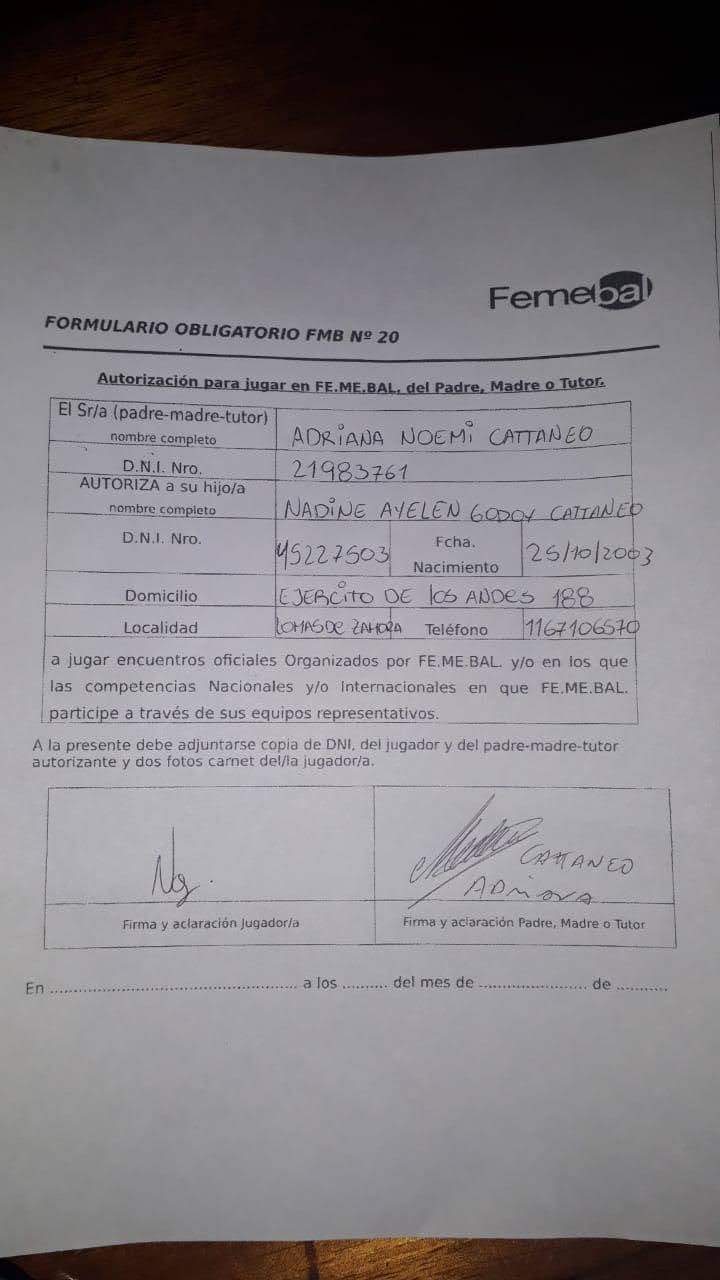 Femebal
FORMULARIO OBLIGATORIO FMB Nº 20
Autorización para jugar en FE.ME.BAL. del Padre, Madre o Tutor.
El Sr/a (padre-madre-tutor)
nombre completo
ADRIANA NOEMI CATTANEO
D.N.I. Nro.
21983761
AUTORIZA a su hijo/a
nombre completo
NADINE AYELEN GODOY CATTANEO
D.N.I. Nro.
45227503
Fcha.
Nacimiento
25/10/2003
Domicilio
EJERCITO DE los ANDES 188
Localidad
LOMAS DE ZAMORA
Teléfono
1167106570
a jugar encuentros oficiales Organizados por FE.ME.BAL. y/o en los que
las competencias Nacionales y/o Internacionales en que FE.ME.BAL.
participe a través de sus equipos representativos.
A la presente debe adjuntarse copia de DNI, del jugador y del padre-madre-tutor
autorizante y dos fotos carnet del/la jugador/a.
CATTANEO
ADRIANA
Firma y aclaración Jugador/a
Firma y aclaración Padre, Madre o Tutor
En .................................................... a los .......... del mes de ....................... de ...........